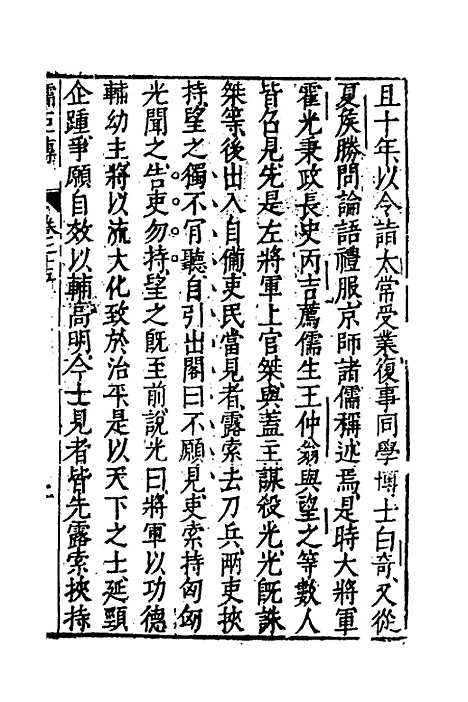 且十年以令詣太常受業復事同學博士白奇又從
夏侯勝問論語禮服京師諸儒稱述焉是時大將軍
霍光秉政長史丙吉薦儒生王仲翁與望之等數人
皆召見先是左將軍上官桀與蓋主謀殺光光既誅
桀等後出入自備吏民當見者露索去刀兵兩吏挾
持望之獨不肎聽自引出閤曰不願見吏索持匈匈
光聞之告吏勿持望之既至前說光曰將軍以功德
輔幼主將以流大化致於治平是以天下之士延頸
企踵爭願自效以輔高明今士見者皆先露索挾持